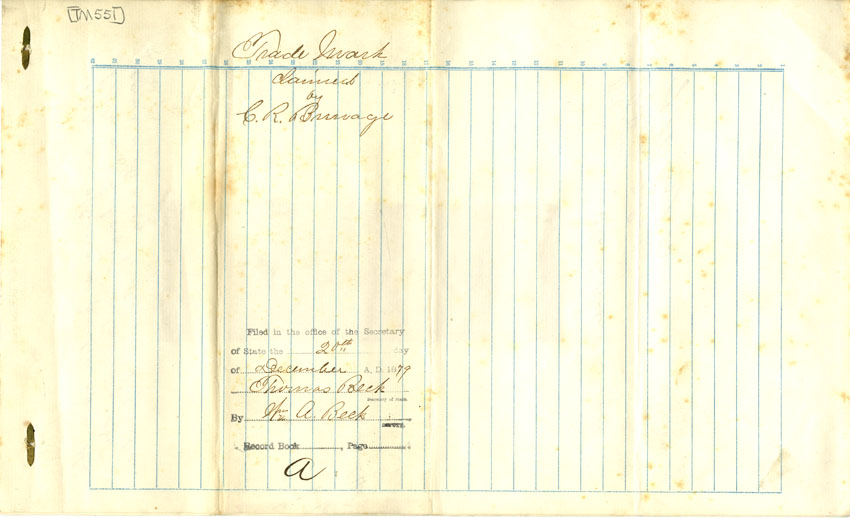 [TM551]
Trade Mark
claimed
by
C. R. Brumage
Filed in the office of the Secretary
of State the 20th day
of December A. D. 1879
Thomas Beck
Secretary of State.
By Wm A. Beck
Deputy.
Record Book , Page
a